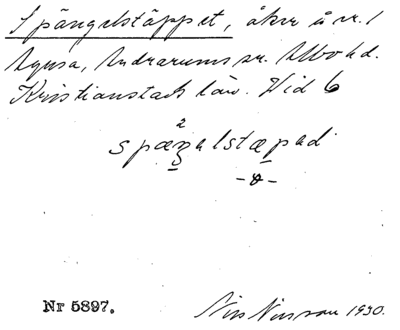 Spängelstäppet, åker å nr. 1
Hyusa, Andrarums sn. Albo hd.
Kristianstads län. Vid 6
2
spæŋalstæpad
-ɐ-
Nr 5897. Nils Nilsson 1930.